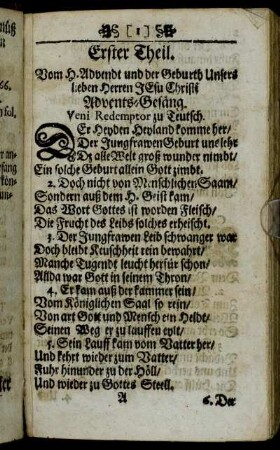 [ 1 ]
Erster Theil.
Vom H. Advendt und der Geburth Unsers
lieben Herren JEsu Christi
Advents-Gesäng.
Veni Redemptor zu Teutsch.
DEr Heyden Heyland komme her/
Der Jungfrawen Geburt uns lehr
Dz alle Welt groß wunder nimbt/
Ein solche Geburt allein Gott zimbt.
2. Doch nicht von Menschlichen Saam/
Sondern auß dem H. Geist kam/
Das Wort Gottes ist worden Fleisch/
Die Frucht des Leibs solches erheischt.
3. Der Jungfrawen Leib schwanger war
Doch bleibt Keuschheit rein bewahrt/
Manche Tugendt leucht herfür schon/
Allda war Gott in seinem Thron/
4. Er kam auß der kammer sein/
Vom Königlichen Saal so rein/
Von art Gott und Mensch ein Heldt/
Seinen Weg er zu lauffen eylt/
5. Sein Lauff kam vom Vatter her/
Und kehrt wieder zum Vatter/
Fuhr hinunder zu der Höll/
Und wieder zu Gottes Stell.
A 6. Der